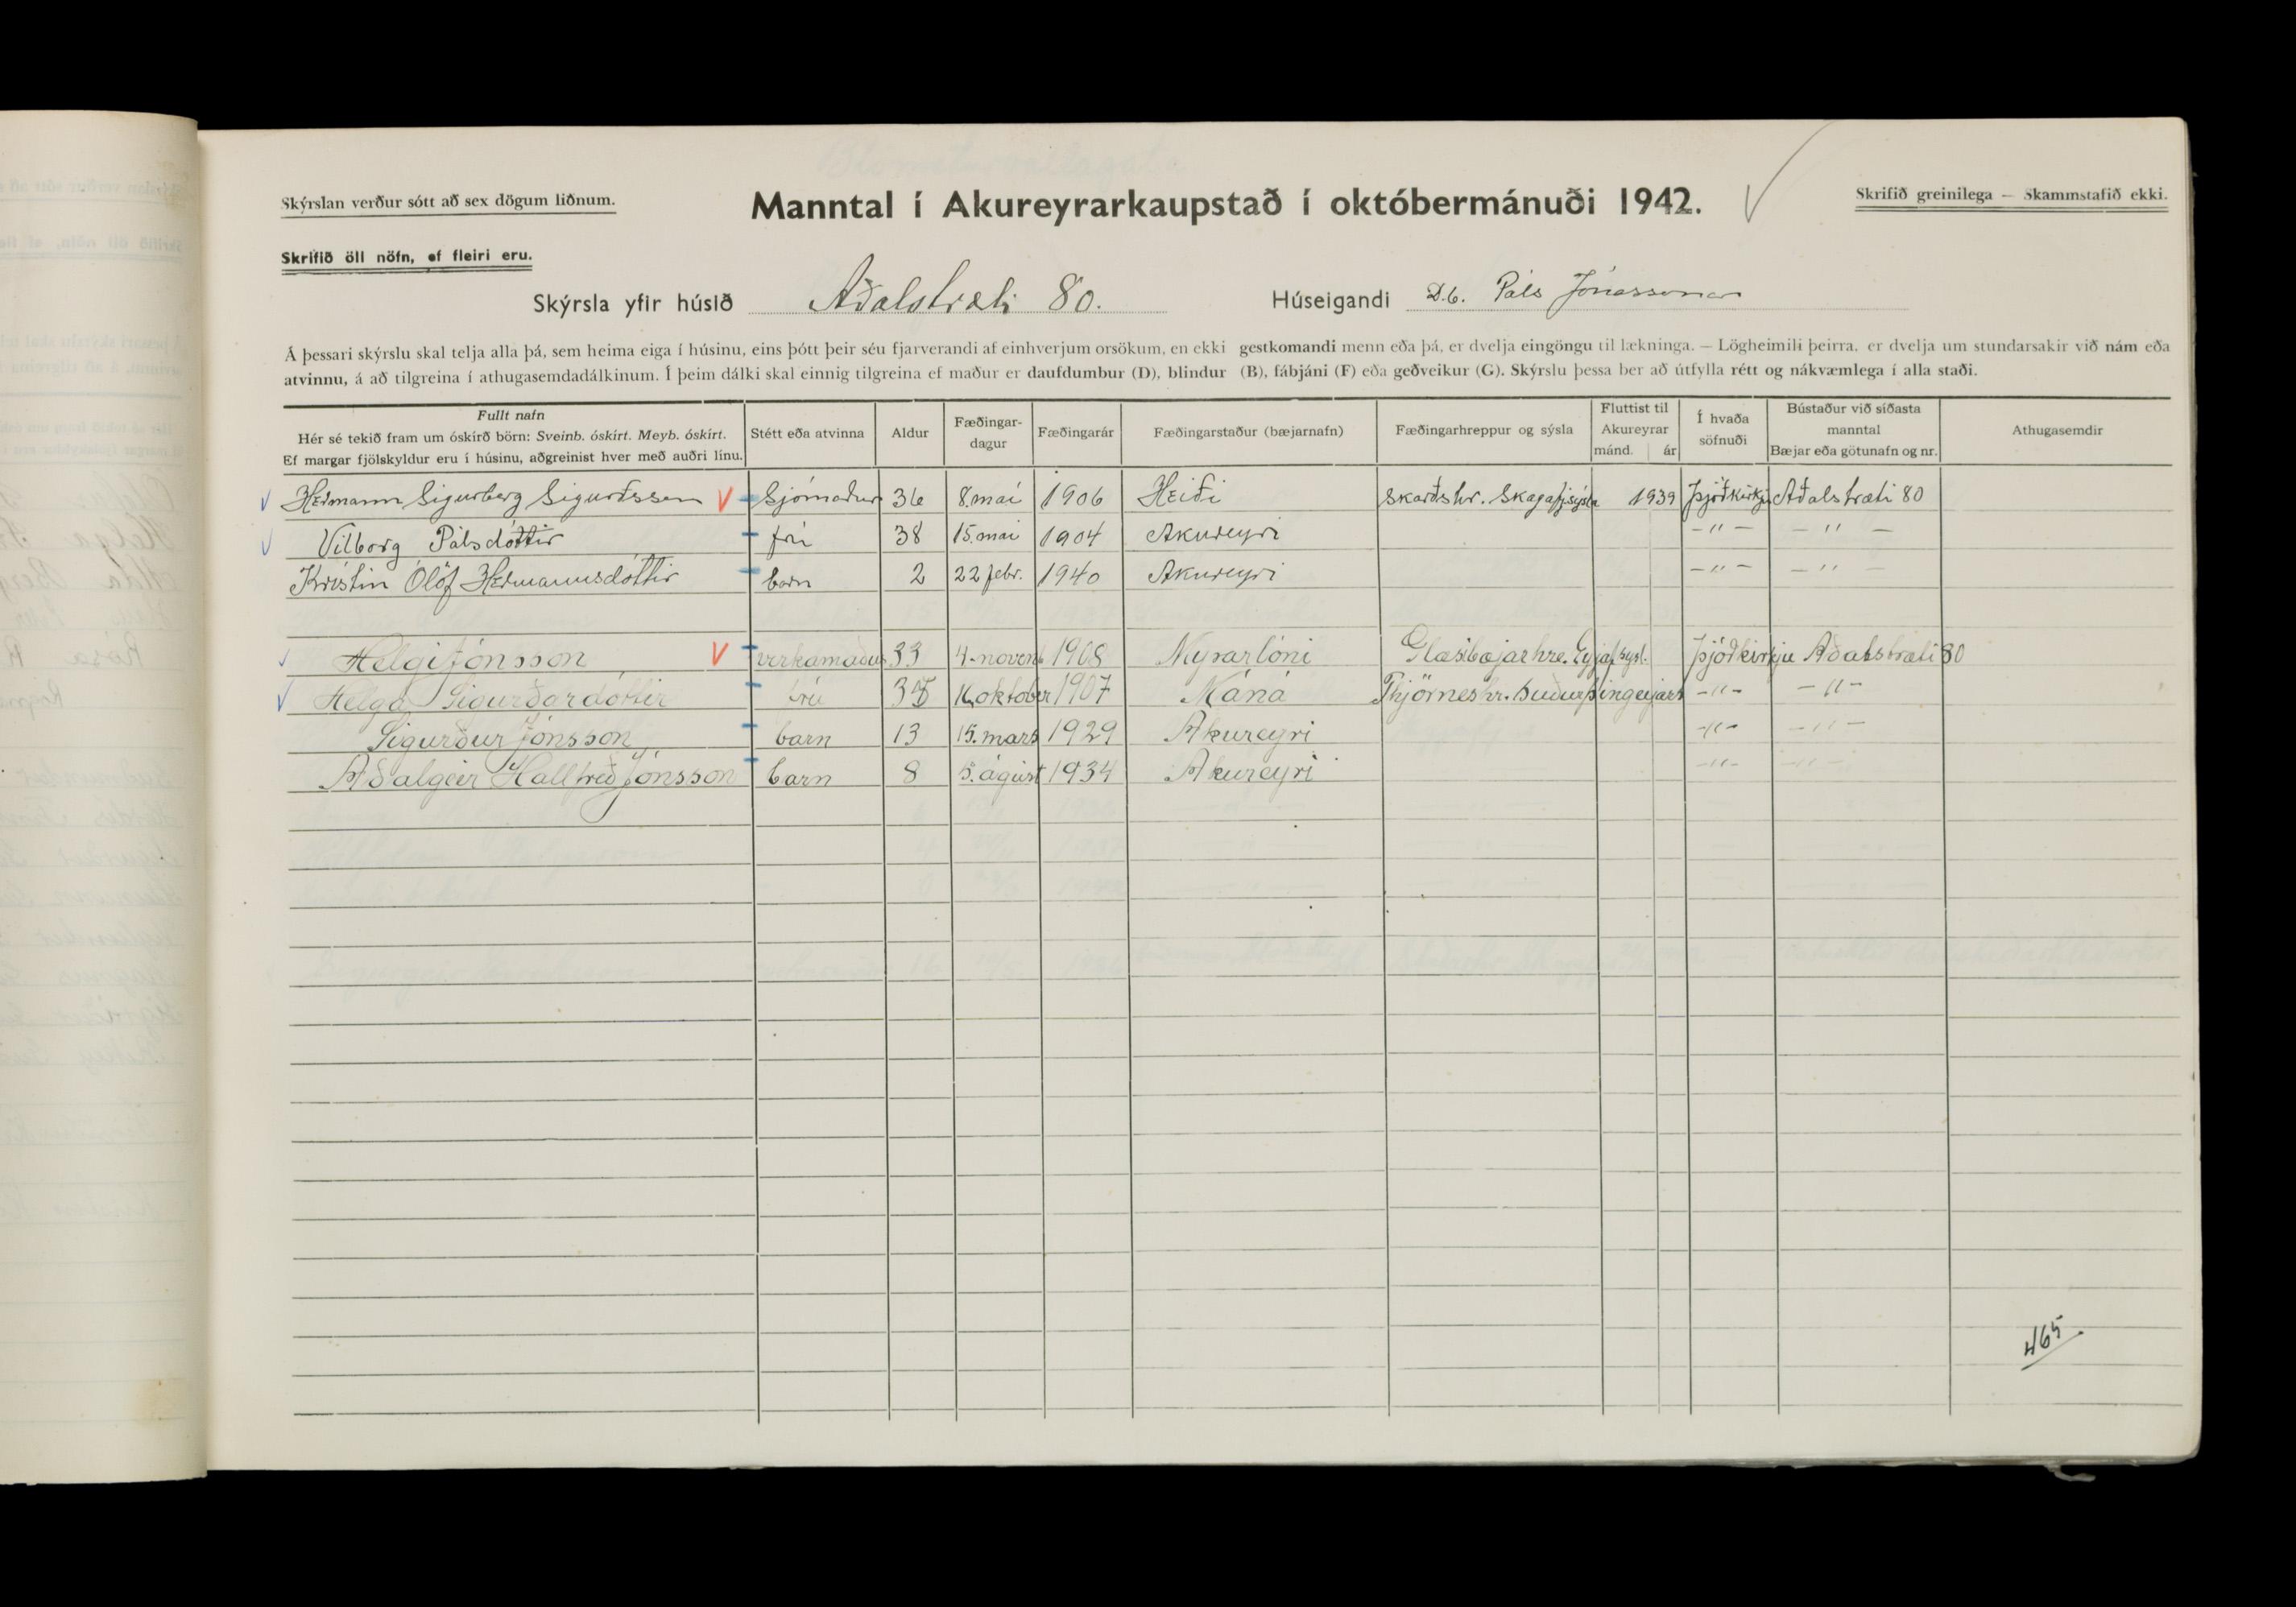 Skýrslan verður sótt að sex dögum liðnum.
Manntal í Akureyrarkaupstað í októbermánuði 1942.
Skrifið greinilega — Skammstafið ekki.
Skrifið öll nöfn, ef fleiri eru.
Skýrsla yfir húsið Aðalstræti 80. Húseigandi D.b. Páls Jónassonar
Á þessari skýrslu skal telja alla þá, sem heima eiga í húsinu, eins þótt þeir séu fjarverandi af einhverjum orsökum, en ekki gestkomandi menn eða þá, er dvelja eingöngu til lækninga. — Lögheimili þeirra, er dvelja um stundarsakir við nám eða
atvinnu, á að tilgreina í athugasemdadálkinum. Í þeim dálki skal einnig tilgreina ef maður er daufdumbur (D), blindur (B), fábjáni (F) eða geðveikur (G). Skýrslu þessa ber að útfylla rétt og nákvæmlega í alla staði.
Fullt nafn
Hér sé tekið fram um óskírð börn: Sveinb. óskírt. Meyb. óskírt.
Ef margar fjölskyldur eru í húsinu, aðgreinist hver með auðri línu.
Stétt eða atvinna
Aldur
Fæðingar-
dagur
Fæðingarár
Fæðingarstaður (bæjarnafn)
Fæðingarhreppur og sýsla
Fluttist til
Akureyrar
mánd. ár
Í hvaða
söfnuði
Bústaður við síðasta
manntal
Bæjar eða götunafn og nr.
Athugasemdir
Hermann Sigurberg Sigurðsson Sjómaður 36 8 maí 1906 Heiði Skarðshr. Skagafj.sýsla 1939 Þjóðkirkju Aðalstræti 80
Vilborg Pálsdóttir frú 38 15. maí 1904 Akureyri —"— —"—
Kristín Ólöf Hermannsdóttir barn 2 22 febr. 1940 Akureyri —"— —"—
Helgi Jónsson verkamaður 33 4. novemb 1908 Mýrarlóni Glæsibæjarhre. Eyjafsysl. Þjóðkirkju Aðalstræti 80
Helga Sigurðardóttir frú 35 16 október 1907 Máná Thjörneshr. Suðurþingeyjars —"— —"—
Sigurður Jónsson barn 13 15. mars 1929 Akureyri —"— —"—
Aðalgeir Hallfreð Jónsson barn 8 5. ágúst 1934 Akureyri —"— —"—
465